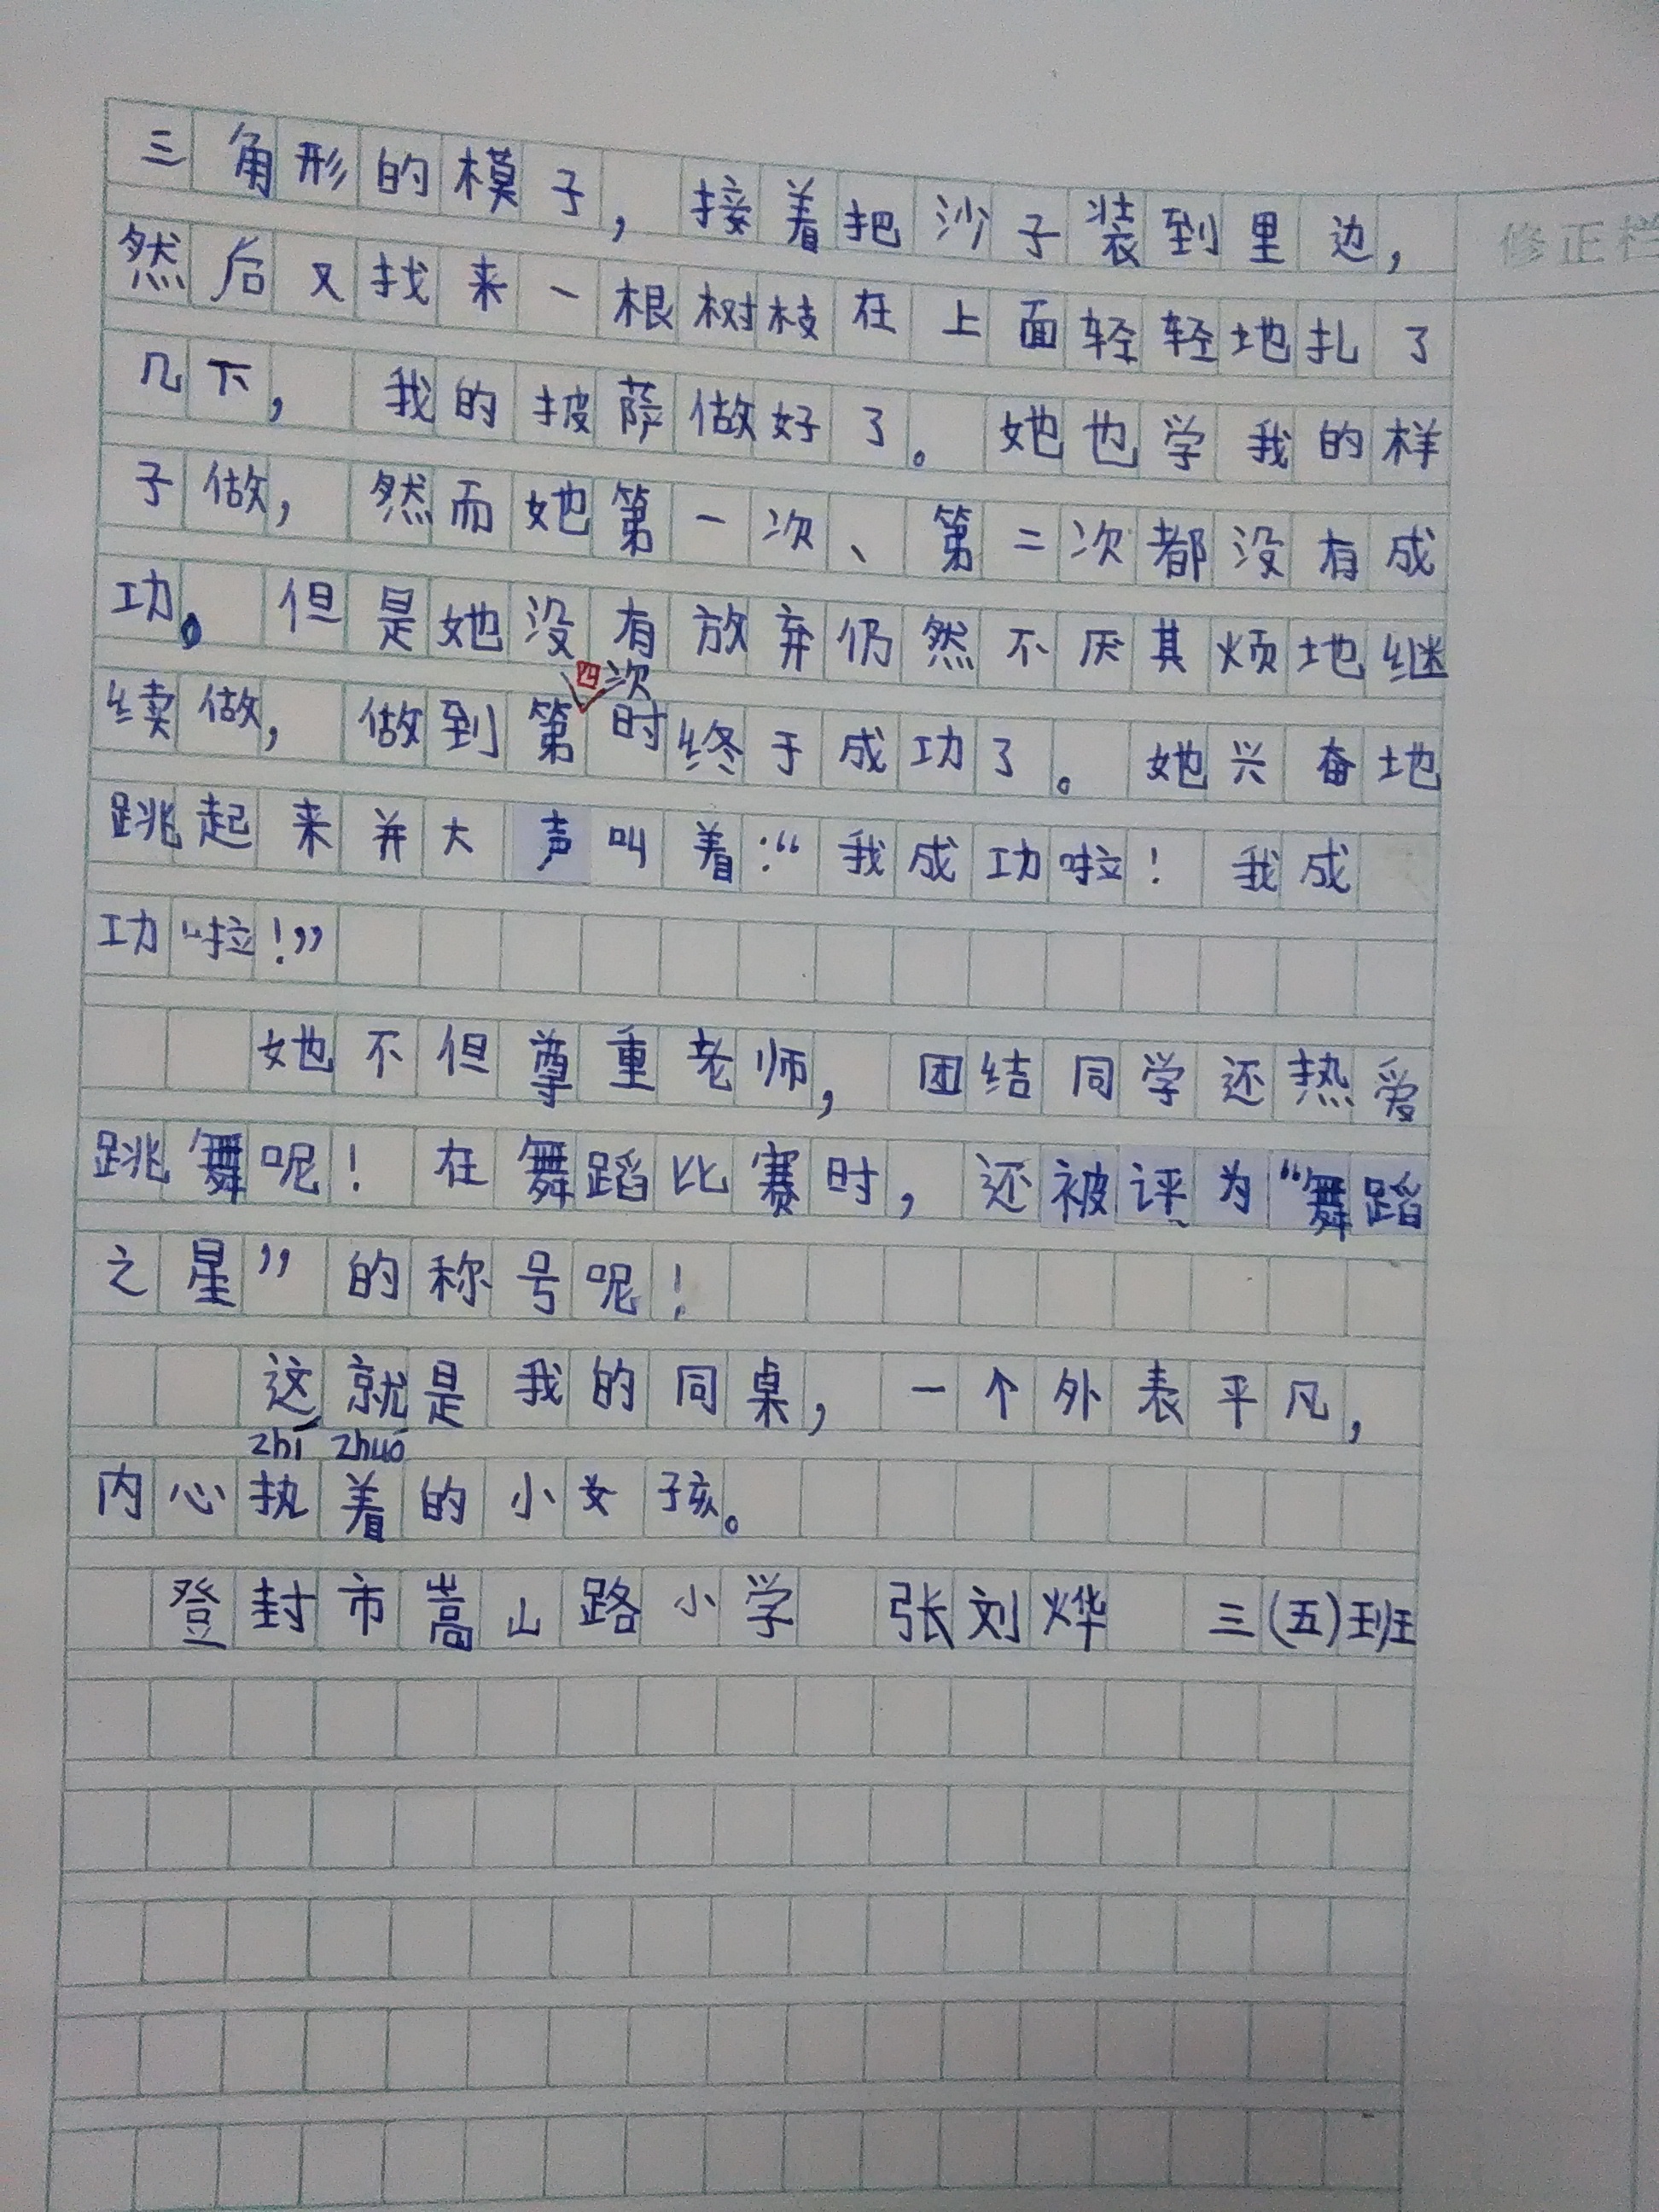 三角形的模子，接着把沙子装到里边，
修正栏
然后又找来一根树枝在上面轻轻地扎了
几下，我的披萨做好了。她也学我的样
子做，然而她第一次、第二次都没有成
功。但是她没有放弃仍然不厌其烦地继
四次
续做，做到第时终于成功了。她兴奋地
跳起来并大声叫着：“我成功啦！我成
功“拉！”
她不但尊重老师，团结同学还热爱
跳舞呢！在舞蹈比赛时，还被评为“舞蹈
之星”的称号呢！
这就是我的同桌，一个外表平凡，
zhí zhuó
内心执着的小女孩。
登封市嵩山路小学 张刘烨 三(五)班